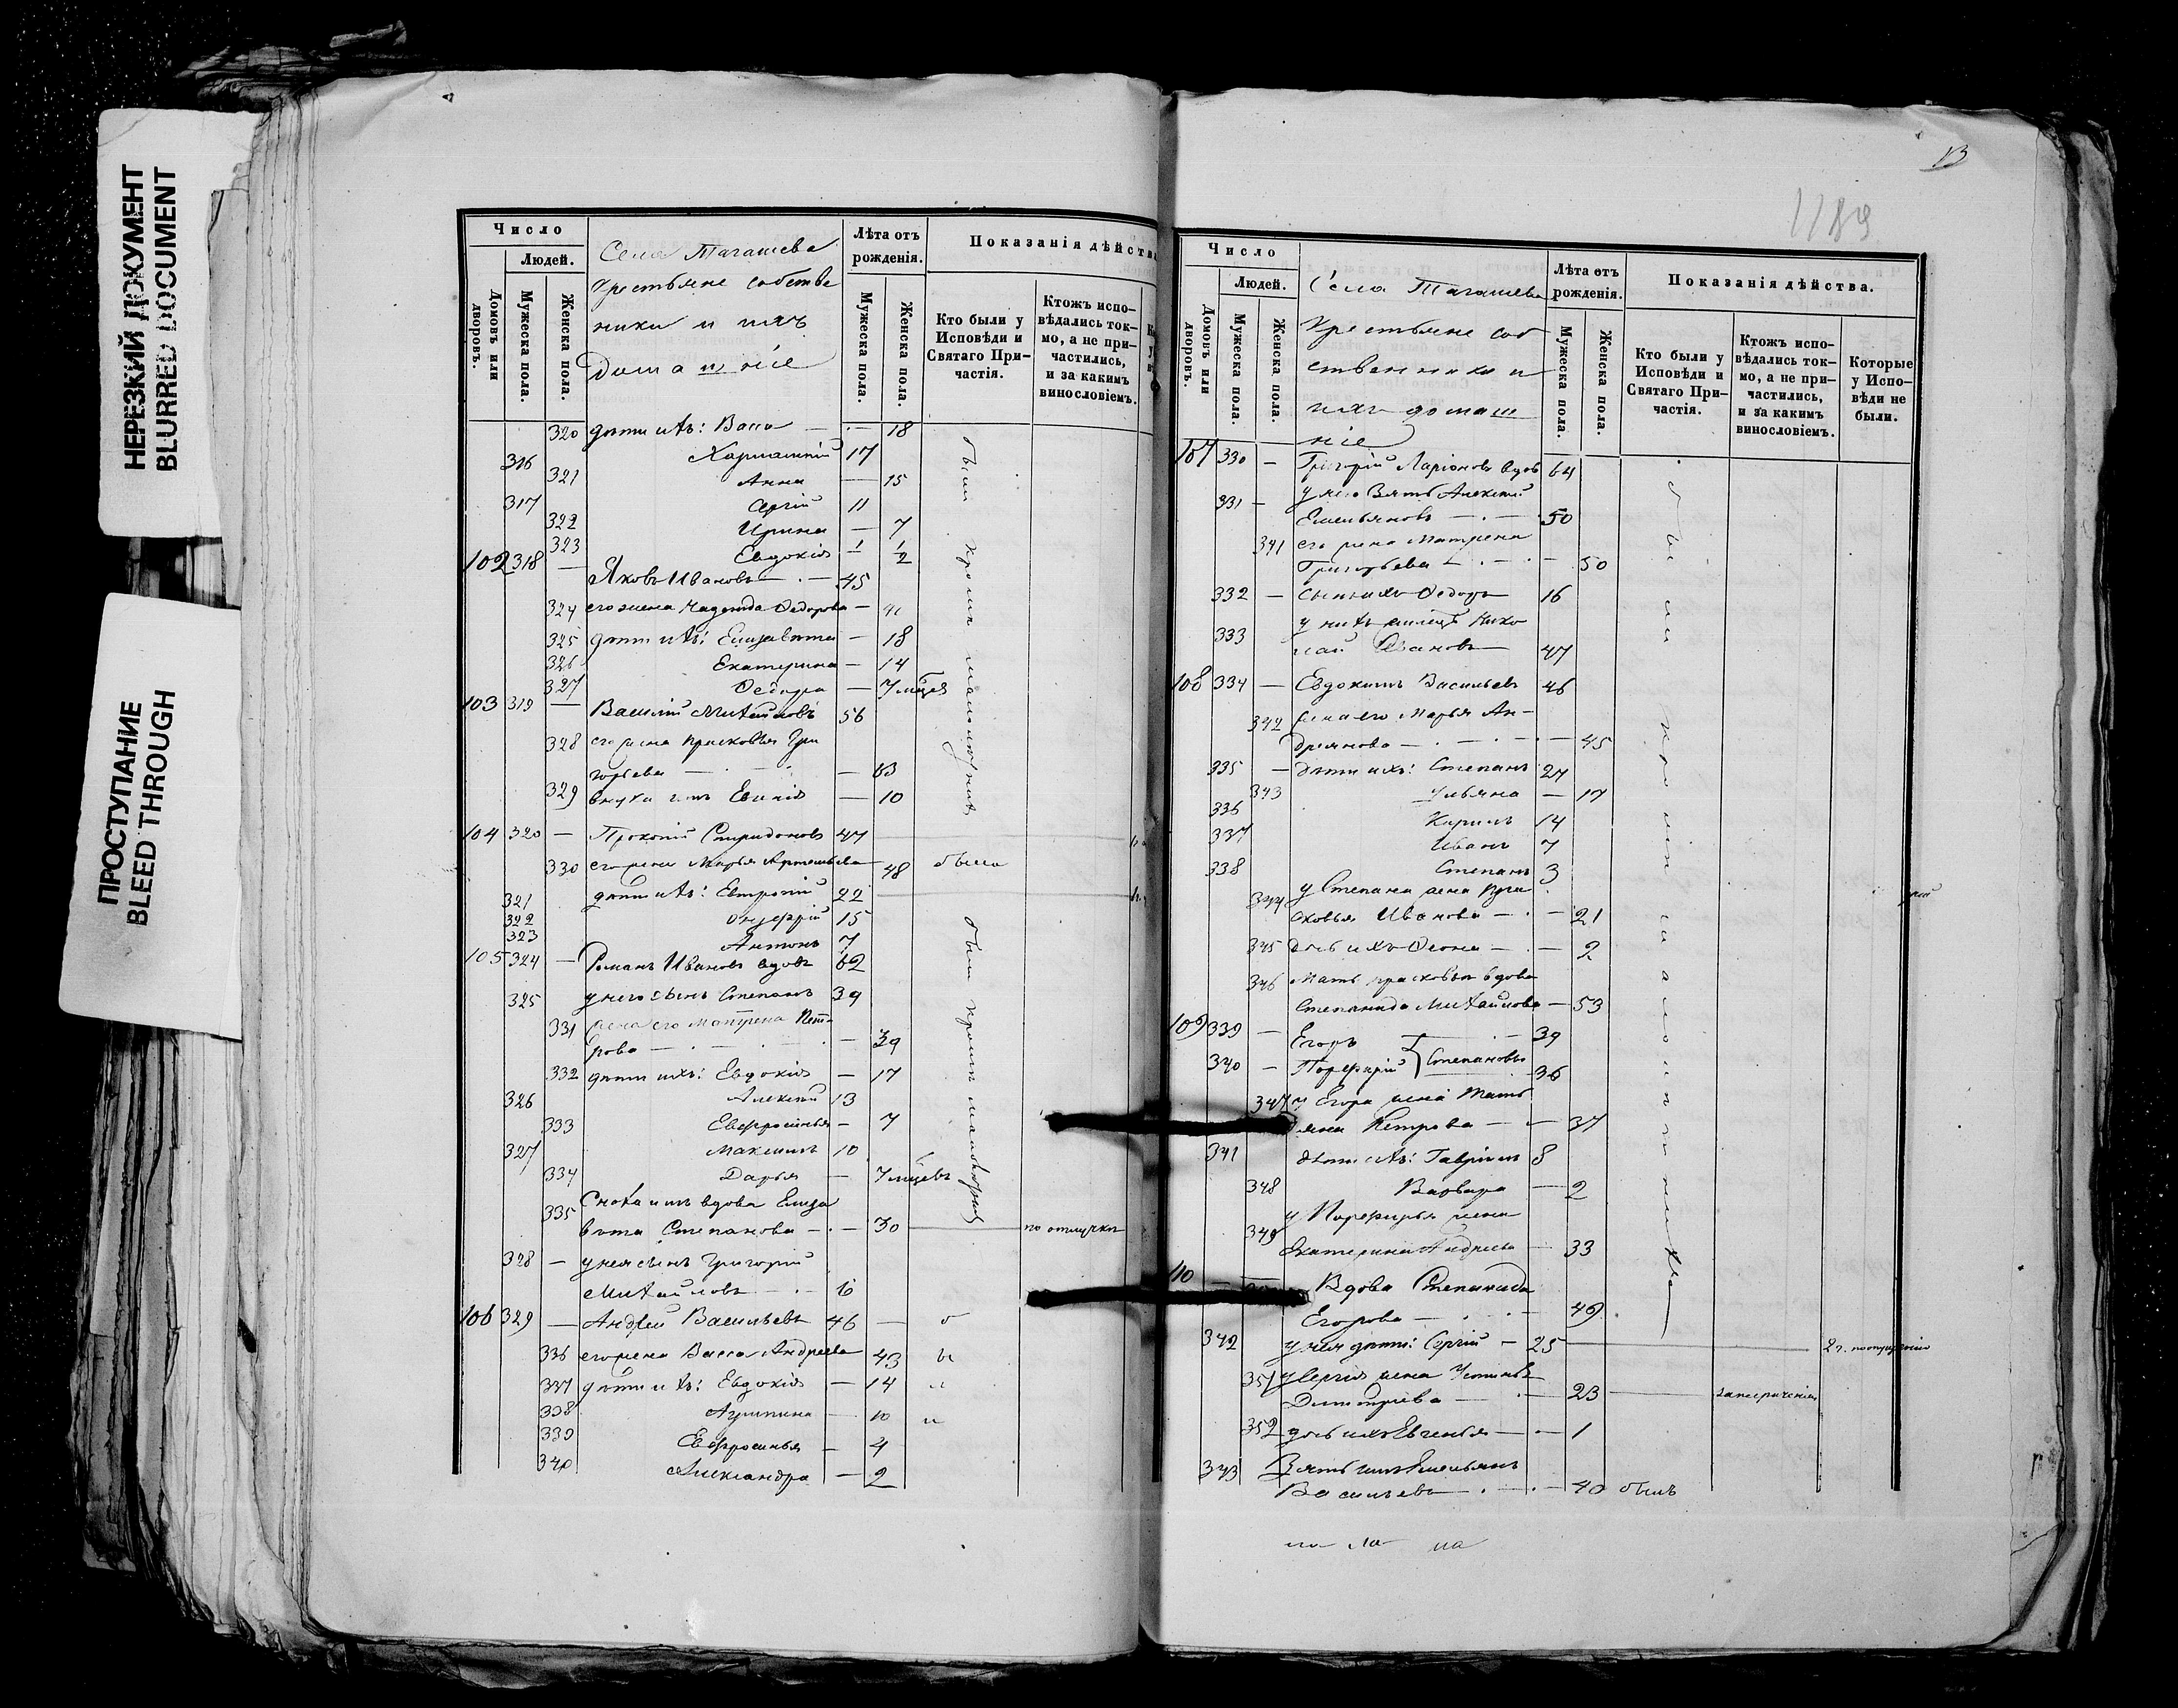 НЕРЕЗКИЙ ДОКУМЕНТ
BLURRED DOCUMENT
ПРОСТУПАНИЕ
BLEED THROUGH
Число
Людей.
Домовъ или дворовъ.
Мужеска пола.
Женска пола.
Села Тагашева
Крестьяне собстве
нники и ихъ
Домашніе
Лѣта отъ рожденія.
Мужеска пола.
Женска пола.
Показанія дѣйства
Кто были у Исповѣди и Святаго Причастія.
Ктожъ исповѣдались токмо, а не причастились, и за какимъ винословіемъ.
320 дѣти ихъ: Васса — 18
316 Харлампій 17
321 Анна — 15
317 Сергій 11
322 Ирина — 7
323 Евдокія — 1/2
были кромѣ малолѣтнихъ
102 318 — Яковъ Ивановъ — 45
324 его жена Надежда Федорова —
325 дѣти ихъ: Елизавета — 18
326 Екатерина — 14
327 Федора — 7 мцевъ
103 319 — Василій Михайловъ 56
328 его жена Прасковья Гри
горьева — 63
329 внука имъ — 10
104 320 — Прокопій Спиридоновъ 47
330 его жена Марья Артемьева 48 была
321 дѣти ихъ: Евтропій 22
322 Онуфрій 15
323 Антонъ 7
были кромѣ малолѣтнихъ
105 324 — Романъ Ивановъ вдовъ 62
325 у него сынъ Степанъ 39
331 жена его Матрена Пет
рова — 39
332 дѣти ихъ: Евдокія — 17
326 Алексѣй 13
333 Евфросинья — 7
327 Максимъ 10
334 Дарья — 7 мцевъ
335 Сноха имъ вдова Елиза
вета Степанова — 30 — по отлучкѣ
328 — у нея сынъ Григорій
Михайловъ 6
106 329 — Андрей Васильевъ 46 — б
336 его жена Васса Андреева 43 ы
337 дѣти ихъ: Евдокія — 14 л
338 Агрипина — 10 и
339 Евфросинья — 4
340 Александра — 2
13
1189
Число
Людей.
Домовъ или дворовъ.
Мужеска пола.
Женска пола.
Села Тагашева
Крестьяне соб
ственники и
ихъ домаш
ніе
Лѣта отъ рожденія.
Мужеска пола.
Женска пола.
Показанія дѣйства.
Кто были у Исповѣди и Святаго Причастія.
Ктожъ исповѣдались токмо, а не причастились, и за какимъ винословіемъ.
Которые у Исповѣди не были.
107 330 — Григорій Ларіоновъ вдов 64
331 — у него зять Алексѣй
Емельяновъ — 50
341 его жена Матрена
Григорьева — 50
332 — сынъ ихъ Федоръ 16
333 у нихъ Нико
лай Ивановъ 47
были кромѣ малолѣтнихъ
108 334 — Евдокимъ Васильевъ 46
342 жена его Марья Ан
дреянова — 45
335 — дѣти ихъ: Степанъ 24
343 Ульяна — 17
336 Кирилъ 14
337 Иванъ 7
338 Степанъ 3
344 у Степана жена Пра
сковья Иванова — 21
345 дочь ихъ — 2
346 Мать Прасковьи вдова
Степанида Михайлова — 53
109 339 — Егоръ 39
340 — Порфирій } Степановы 36
347 у Егора жена Тать
яна Петрова — 37
341 дѣти ихъ: Гавріилъ 8
348 Варвара — 2
349 у Порфирья жена
Екатерина Андреева — 33
110 — Вдова Степанида
Егорова — 49
342 у нея дѣти: Сергій — 25
351 у Сергія жена Устинья
Димитріева — 23
352 дочь ихъ Евгенья — 1
343 Зять имъ Емельянъ
Васильевъ — 40 былъ